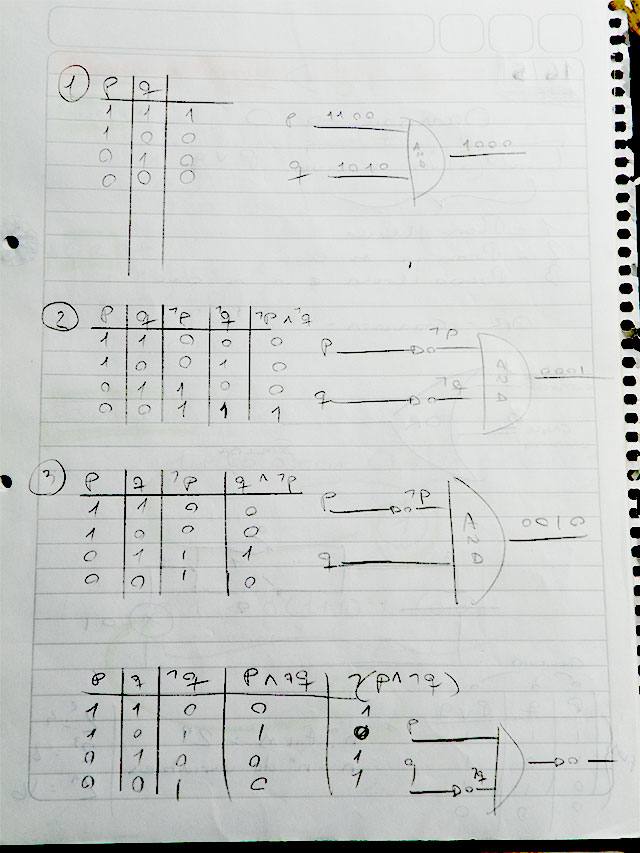 1 p q
1 1 1
1 0 0
0 1 0
0 0 0
p 1100
q 1010
1000
2 p q ¬p ¬q ¬p ∧ ¬q
1 1 0 0 0
1 0 0 1 0
0 1 1 0 0
0 0 1 1 1
p ¬p
q ¬q
0001
3 p q ¬p q ∧ ¬p
1 1 0 0
1 0 0 0
0 1 1 1
0 0 1 0
p ¬p
q
0010
p q ¬q p ∧ ¬q ¬(p ∧ ¬q)
1 1 0 0 1
1 0 1 1 0
0 1 0 0 1
0 0 1 0 1
p
q ¬q